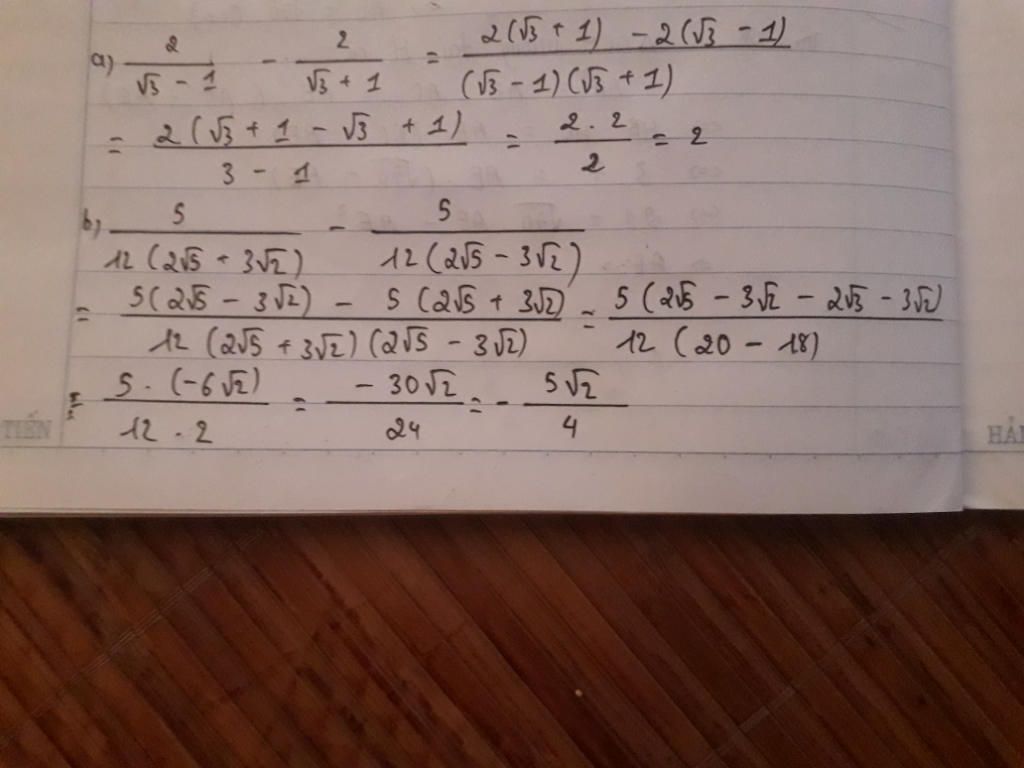 a) 2/(√3 - 1) - 2/(√3 + 1) = (2(√3 + 1) - 2(√3 - 1))/((√3 - 1)(√3 + 1))
= 2(√3 + 1 - √3 + 1)/(3 - 1) = (2.2)/2 = 2
b) 5/(12(2√5 + 3√2)) - 5/(12(2√5 - 3√2))
= (5(2√5 - 3√2) - 5(2√5 + 3√2))/(12(2√5 + 3√2)(2√5 - 3√2)) = 5(2√5 - 3√2 - 2√3 - 3√2)/(12(20 - 18))
= (5.(-6√2))/(12.2) = (-30√2)/24 = - 5√2/4
TIẾN